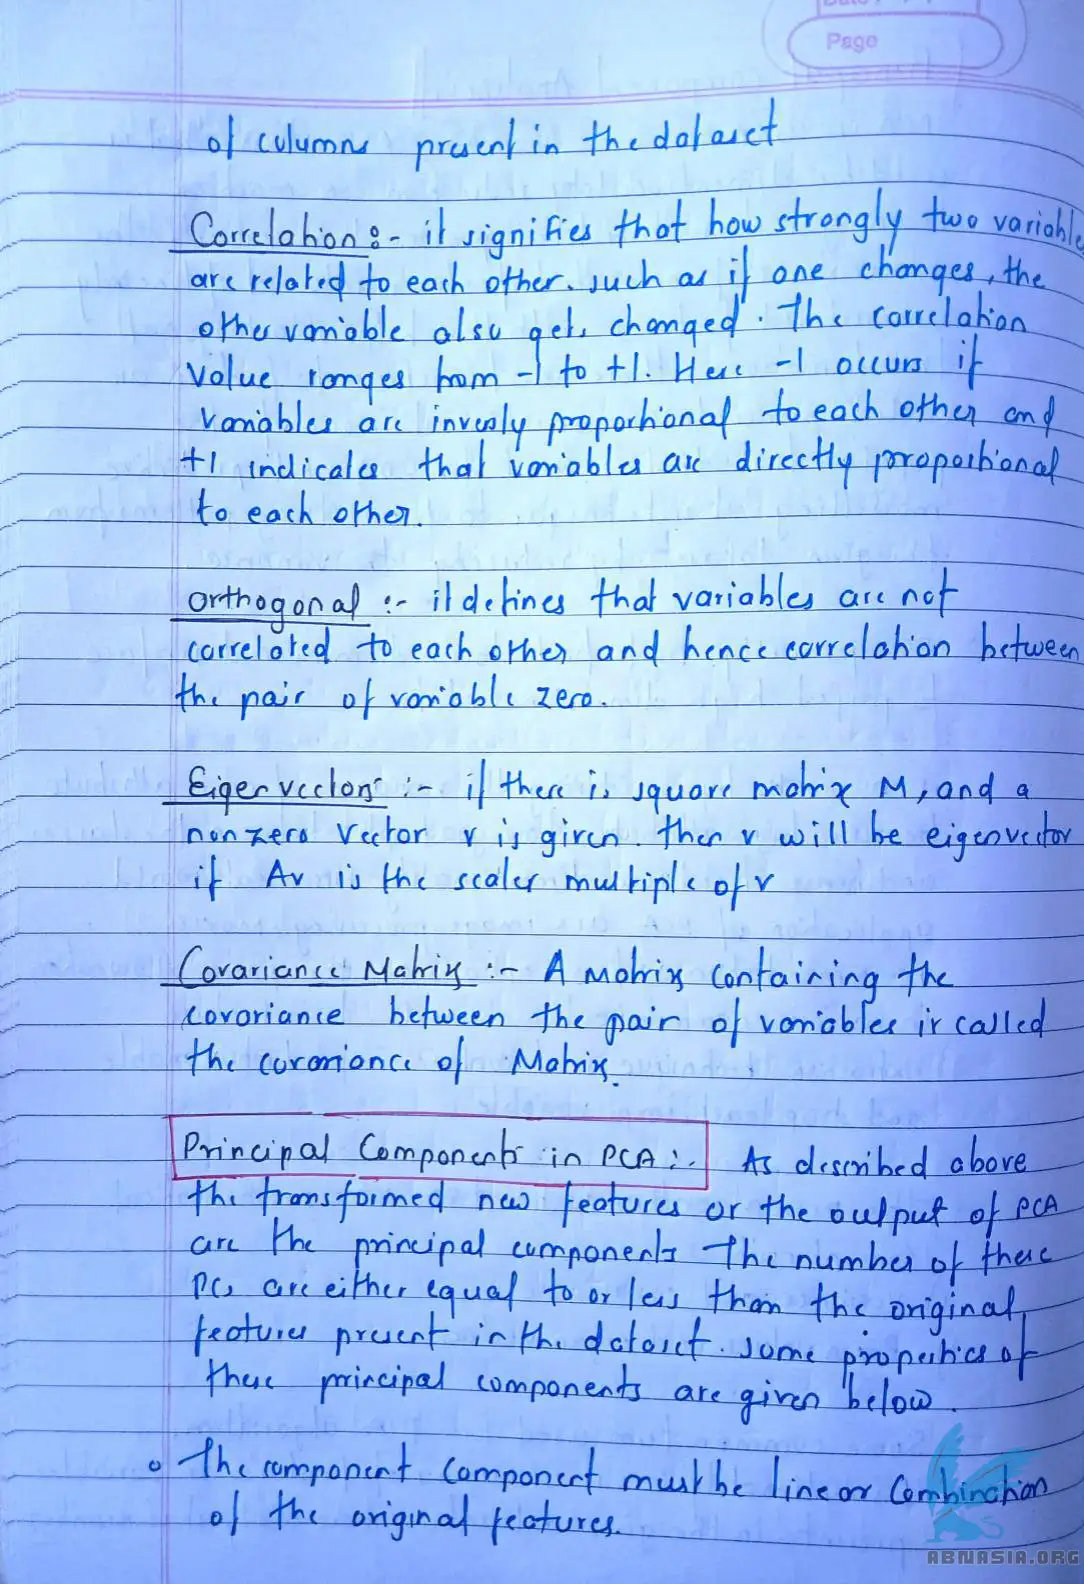 Page
of columns present in the dataset
Correlation :- it signifies that how strongly two variable
are related to each other. such as if one changes, the
other variable also gets changed. The correlation
Value ranges from -1 to +1. Here -1 occurs if
variables are inversly proportional to each other and
+1 indicates that variables are directly proportional
to each other.
Orthogonal :- it defines that variables are not
correlated to each other and hence correlation between
the pair of variable zero.
Eigen vectors :- if there is square matrix M, and a
non zero Vector v is given. then v will be eigenvector
if Av is the scaler multiple of v
Covariance Matrix :- A Matrix containing the
covariance between the pair of variables is called
the covariance of Matrix.
Principal Components in PCA :- As described above
the transformed new features or the output of PCA
are the principal components The number of these
PCs are either equal to or less than the original
features present in the dataset. some properties of
these principal components are given below.
o The component component must be linear Combination
of the original features.
ABNASIA.ORG